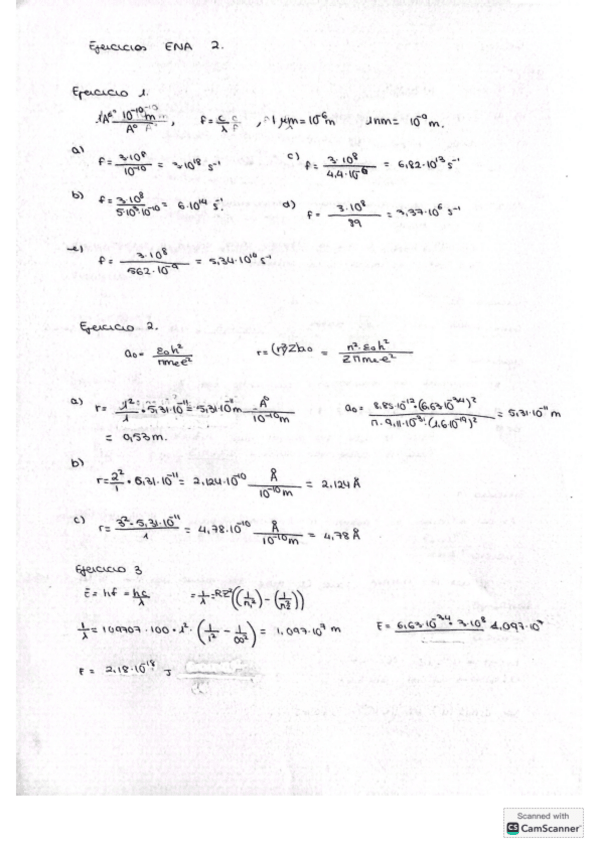 Ejercicios ENA 2.
Ejercicio 1.
1Aº 10⁻¹⁰ m / Aº , f = c/λ , 1 μm = 10⁻⁶ m 1nm = 10⁻⁹ m.
a) f = 3·10⁸ / 10⁻¹⁰ = 3·10¹⁸ s⁻¹ c) f = 3·10⁸ / 4,4·10⁻⁶ = 6,82·10¹³ s⁻¹
b) f = 3·10⁸ / 5·10³·10⁻¹⁰ = 6·10¹⁴ s⁻¹ d) f = 3·10⁸ / 89 = 3,37·10⁶ s⁻¹
e) f = 3·10⁸ / 562·10⁻⁹ = 5,34·10¹⁰ s⁻¹
Ejercicio 2.
a₀ = ε₀h² / πme² r = (n²/Z)a₀ = n²·ε₀h² / Zπme²
a) r = 1²/1 · 5,31·10⁻¹¹ = 5,31·10⁻¹¹ m Å / 10⁻¹⁰ m a₀ = 8,85·10⁻¹²·(6,63·10⁻³⁴)² / π·9,11·10⁻³¹·(1,6·10⁻¹⁹)² = 5,31·10⁻¹¹ m
= 0,53m.
b) r = 2²/1 · 5,31·10⁻¹¹ = 2,124·10⁻¹⁰ Å / 10⁻¹⁰ m = 2,124 Å
c) r = 3²·5,31·10⁻¹¹ / 1 = 4,78·10⁻¹⁰ Å / 10⁻¹⁰ m = 4,78 Å
Ejercicio 3
E = hf = hc/λ = 1/λ = RZ²((1/n₁²) - (1/n₂²))
1/λ = 109707·100·1²·(1/1² - 1/∞²) = 1,097·10⁷ m E = 6,63·10⁻³⁴·3·10⁸ 1,097·10⁷
E = 2,18·10⁻¹⁸ J
Scanned with
CS CamScanner